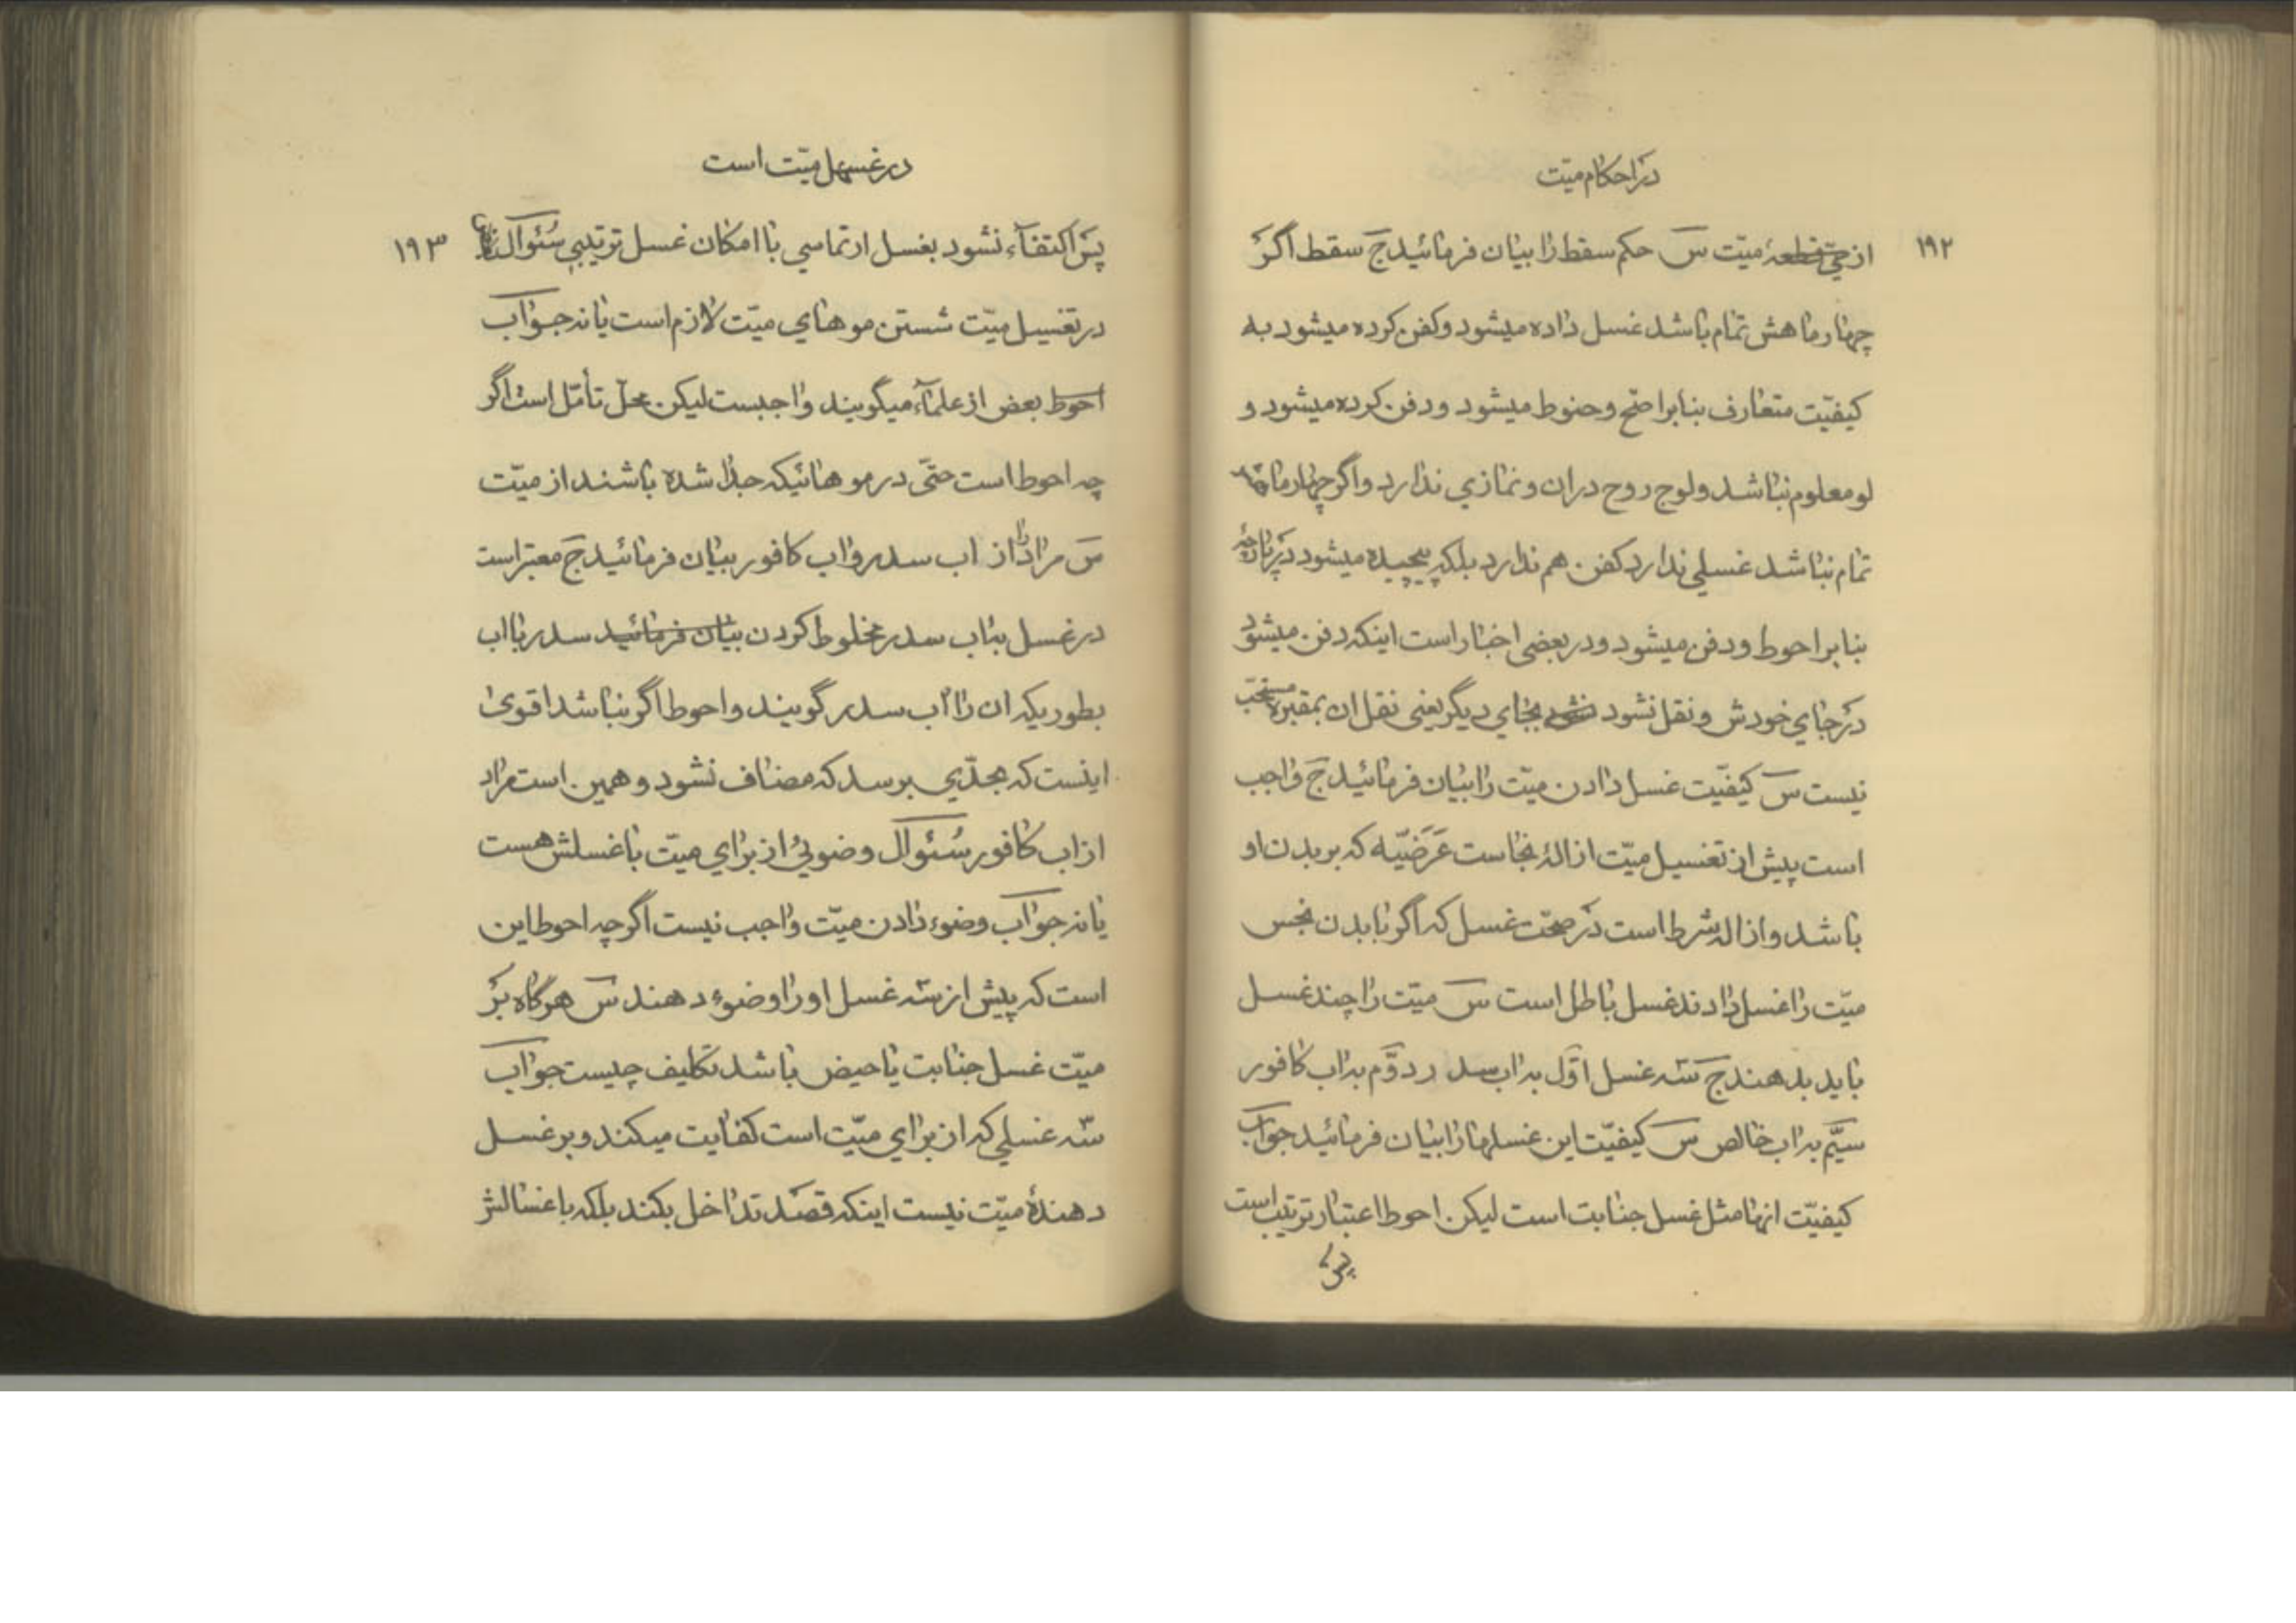 در احکام میّت
۱۹۲
از حیّ قطعهٔ میّت س حکم سقط را بیان فرمائید ج سقط اگر
چهار ماهش تمام باشد غسل داده میشود و کفن کرده میشود به
کیفیّت متعارف بنابر اصحّ و حنوط میشود و دفن کرده میشود و
لو معلوم نباشد ولوج روح در ان و نمازی ندارد و اگر چهار ماهش
تمام نباشد غسلی ندارد کفن هم ندارد بلکه پیچیده میشود در پارچه
بنابر احوط و دفن میشود و در بعضی اخبار است اینکه دفن میشود
در جای خودش و نقل نشود بجای دیگر یعنی نقل ان بمقبره مستحب
نیست س کیفیّت غسل دادن میّت را بیان فرمائید ج واجب
است پیش از تغسیل میّت ازالهٔ نجاست عَرَضیّه که بر بدن او
باشد و ازاله شرط است در صحّت غسل که اگر با بدن نجس
میّت را غسل دادند غسل باطل است س میّت را چند غسل
باید بدهند ج سّه غسل اوّل به اب سدر دوّم به اب کافور
سیّم به اب خالص س کیفیّت این غسلها را بیان فرمائید جواب
کیفیّت انها مثل غسل جنابت است لیکن احوط اعتبار ترتیب است
پس
در غسهل میّت است
۱۹۳
پس اکتفآء نشود بغسل ارتماسی با امکان غسل ترتیبی سُئوال
در تغسیل میّت شستن موهای میّت لازم است یا نه جواب
احوط بعض از علمآء میگویند واجبست لیکن محلّ تأمّل است اگر
چه احوط است حتّی در موهائیکه جدا شده باشند از میّت
س مراد را از اب سدر و اب کافور بیان فرمائید ج معتبر است
در غسل به اب سدر مخلوط کردن بیان فرمائید سدر با اب
بطوریکه ان را اب سدر گویند و احوط اگر نباشد اقوی
اینست که بحدّی برسد که مضاف نشود و همین است مراد
از اب کافور سُئوال وضوئی از برای میّت با غسلش هست
یا نه جواب وضوء دادن میّت واجب نیست اگرچه احوط این
است که پیش از سّه غسل او را وضوء دهند س هرگاه بر
میّت غسل جنابت یا حیض باشد تکلیف چیست جواب
سّه غسلی که از برای میّت است کفایت میکند و بر غسل
دهندهٔ میّت نیست اینکه قصد تداخل بکند بلکه باغسالش